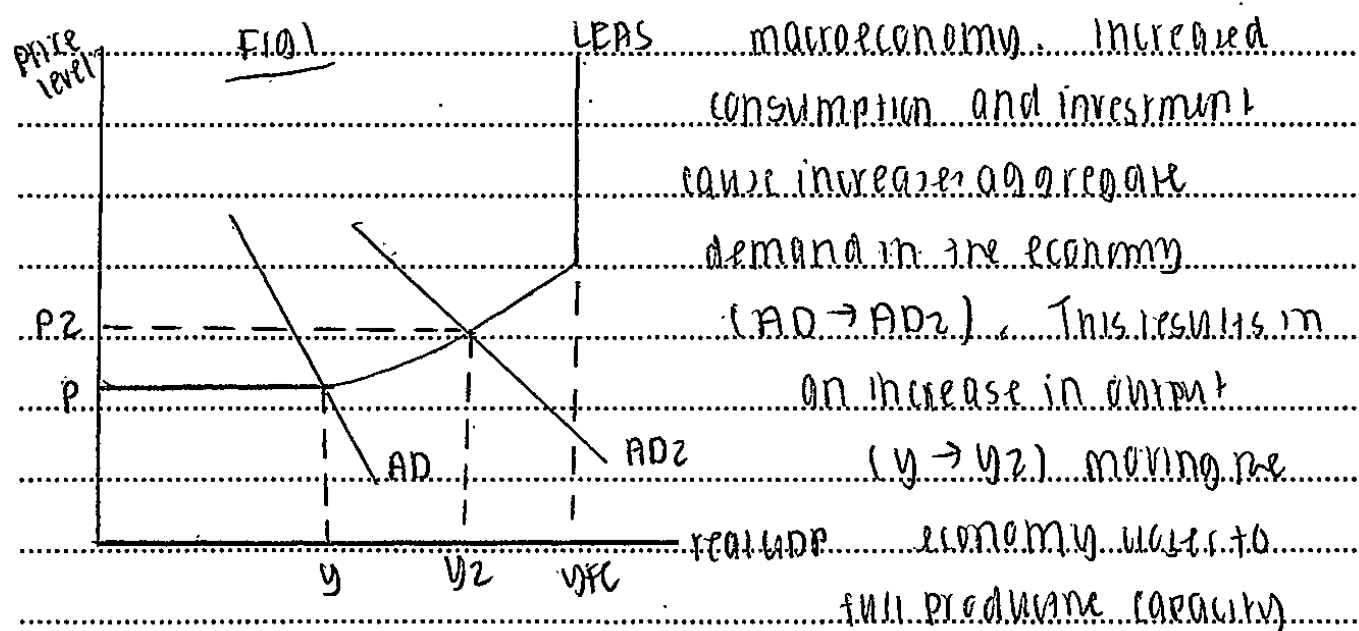 price level
Fig 1
LRAS
macroeconomy. Increased
consumption and investment
cause increases aggregate
demand in the economy
(AD → AD2). This results in
an increase in output
(y → y2) moving the
economy closer to
full productive capacity
P2
P
AD
AD2
real GDP
y
y2
yFC